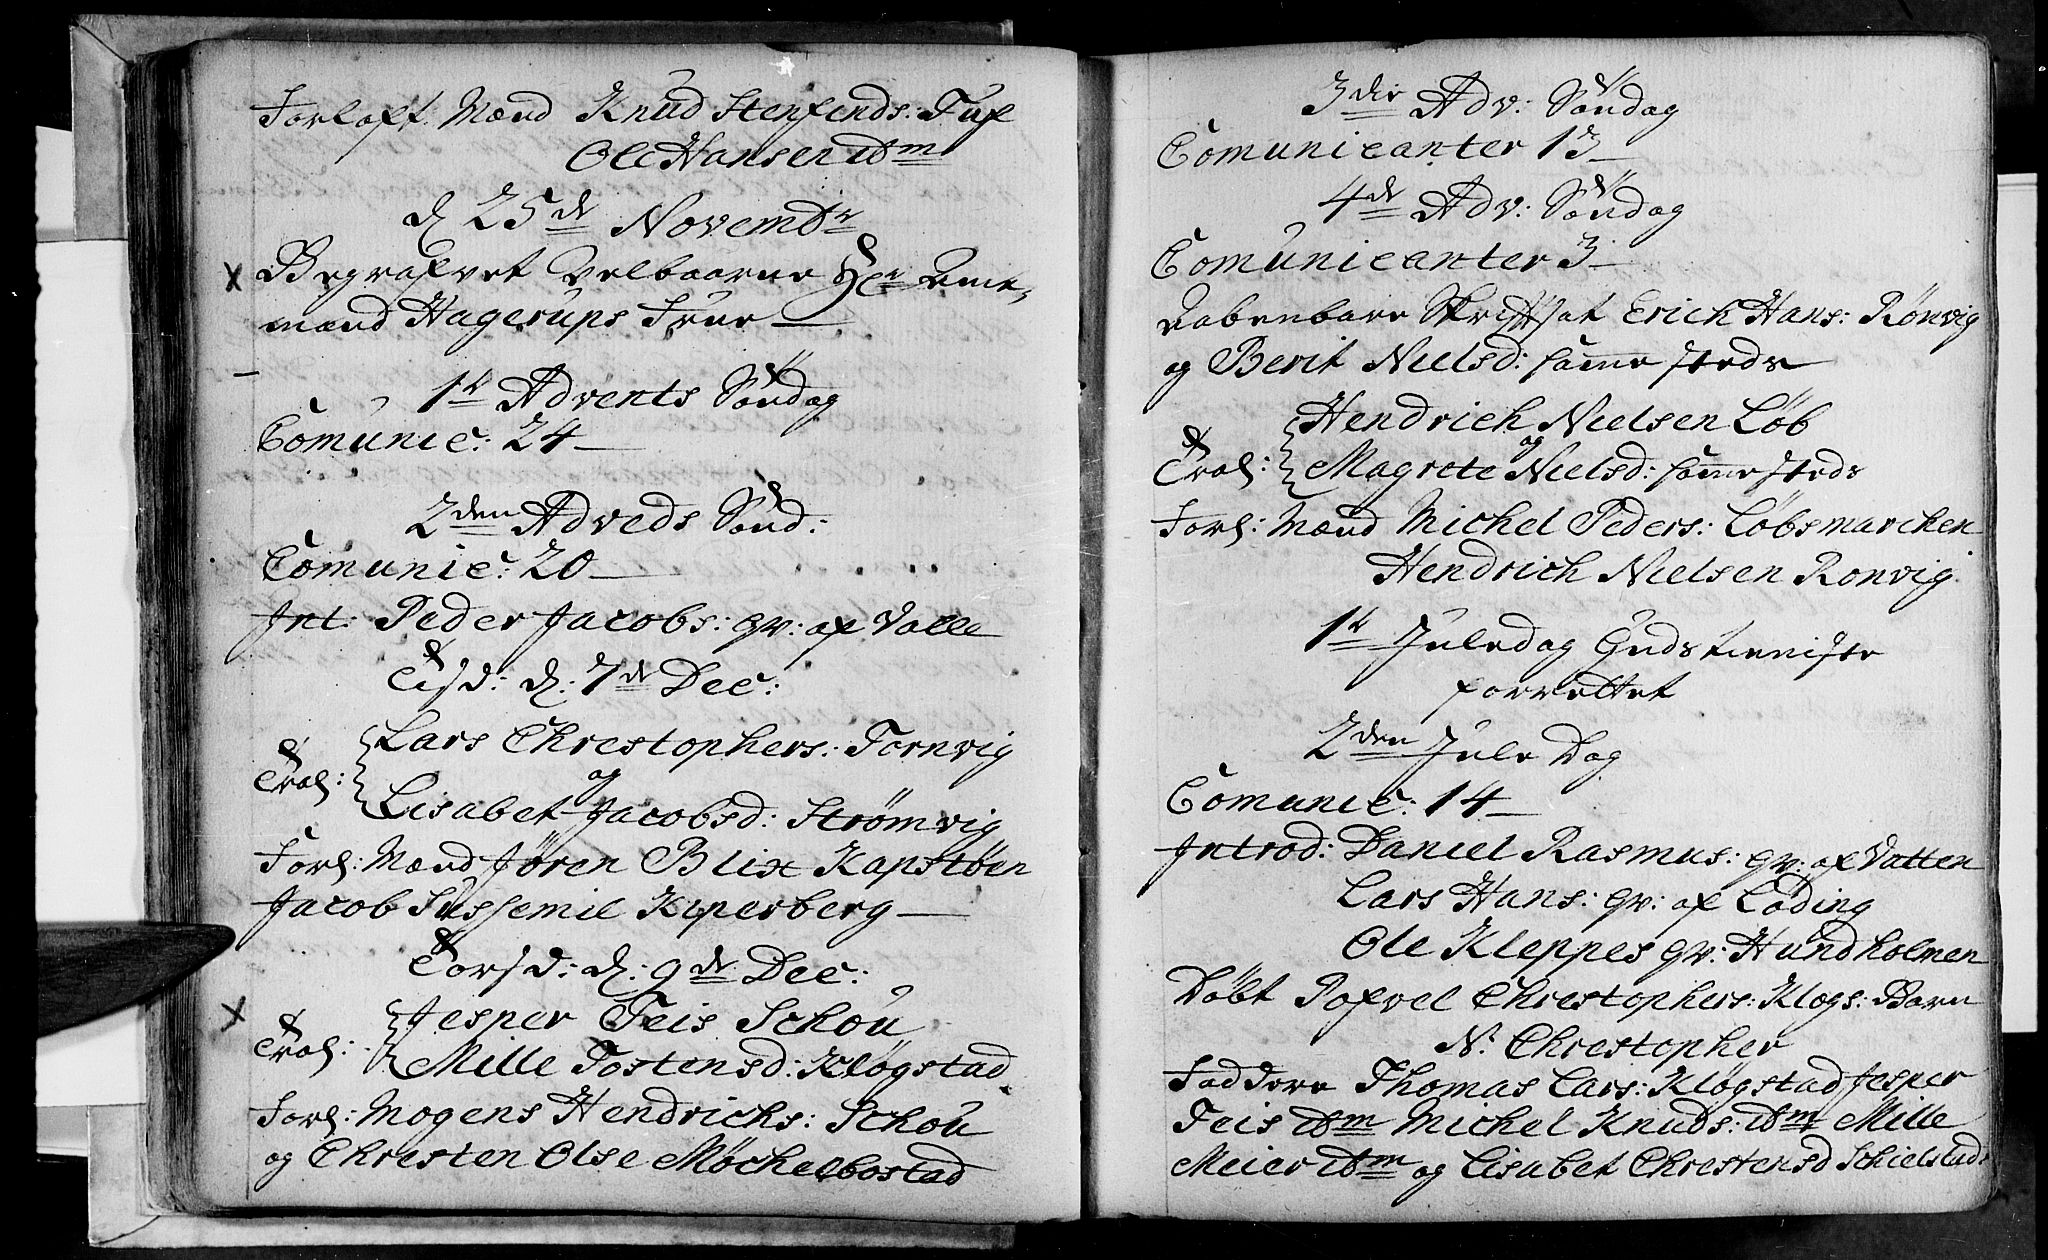 Forlofs Mænd Knud Stensends: Tuf
Ole Hansen ibm
d 25de Novembr
Begrafvet Velbaarne Hr Amt,
mand Hagerups Frue
1te Advents Søndag
Comunic: 24
2den Adveds Sønd:
Comunic: 20
Int: Peder Jacobs: qv: af Valle
Tisd: d: 7de Dec:
Lars Chrestophers: Tornvig
Trol: og
Lisabet Jacobsd: Strømvig
Forl: Mænd Jøren Blix Kapstøen
Jacob Fussemil Kiperberg
Torsd: d: 9de Dec:
Jesper Feis Schou
Trol:
Mille Tostensd: Kløgstad
Forl: Mogens Hendrichs: Schou
og Chresten Olse Møchelbostad
3die Adv: Søndag
Comunicanter 13
4de Adv: Søndag
Comunicanter 3
Aabenbare Skriftet Erich Hans: Rønvig
og Berit Nielsd: samme steds
Hendrich Nielsen Løb
Trol: og
Magrete Nielsd: samme steds
Forl: Mænd Michel Peders: Løbsmarchen
Hendrich Nielsen Ronvig
1te Juledag Gudstieniste
forrettet
2den Jule Dag
Comunic: 14
Introd: Daniel Rasmus: qv: af Vatten
Lars Hans: qv: af Løding
Ole Kleppes qv: Hundholmen
Døbt Pofvel Chrestophers: Kløgs: Barn
N. Chrestopher
Faddere Thomas Lars: Kløgstad Jesper
Feis ibm Michel Knuds: ibm Mille
Meier ibm og Lisabet Chrestensd Schielstad